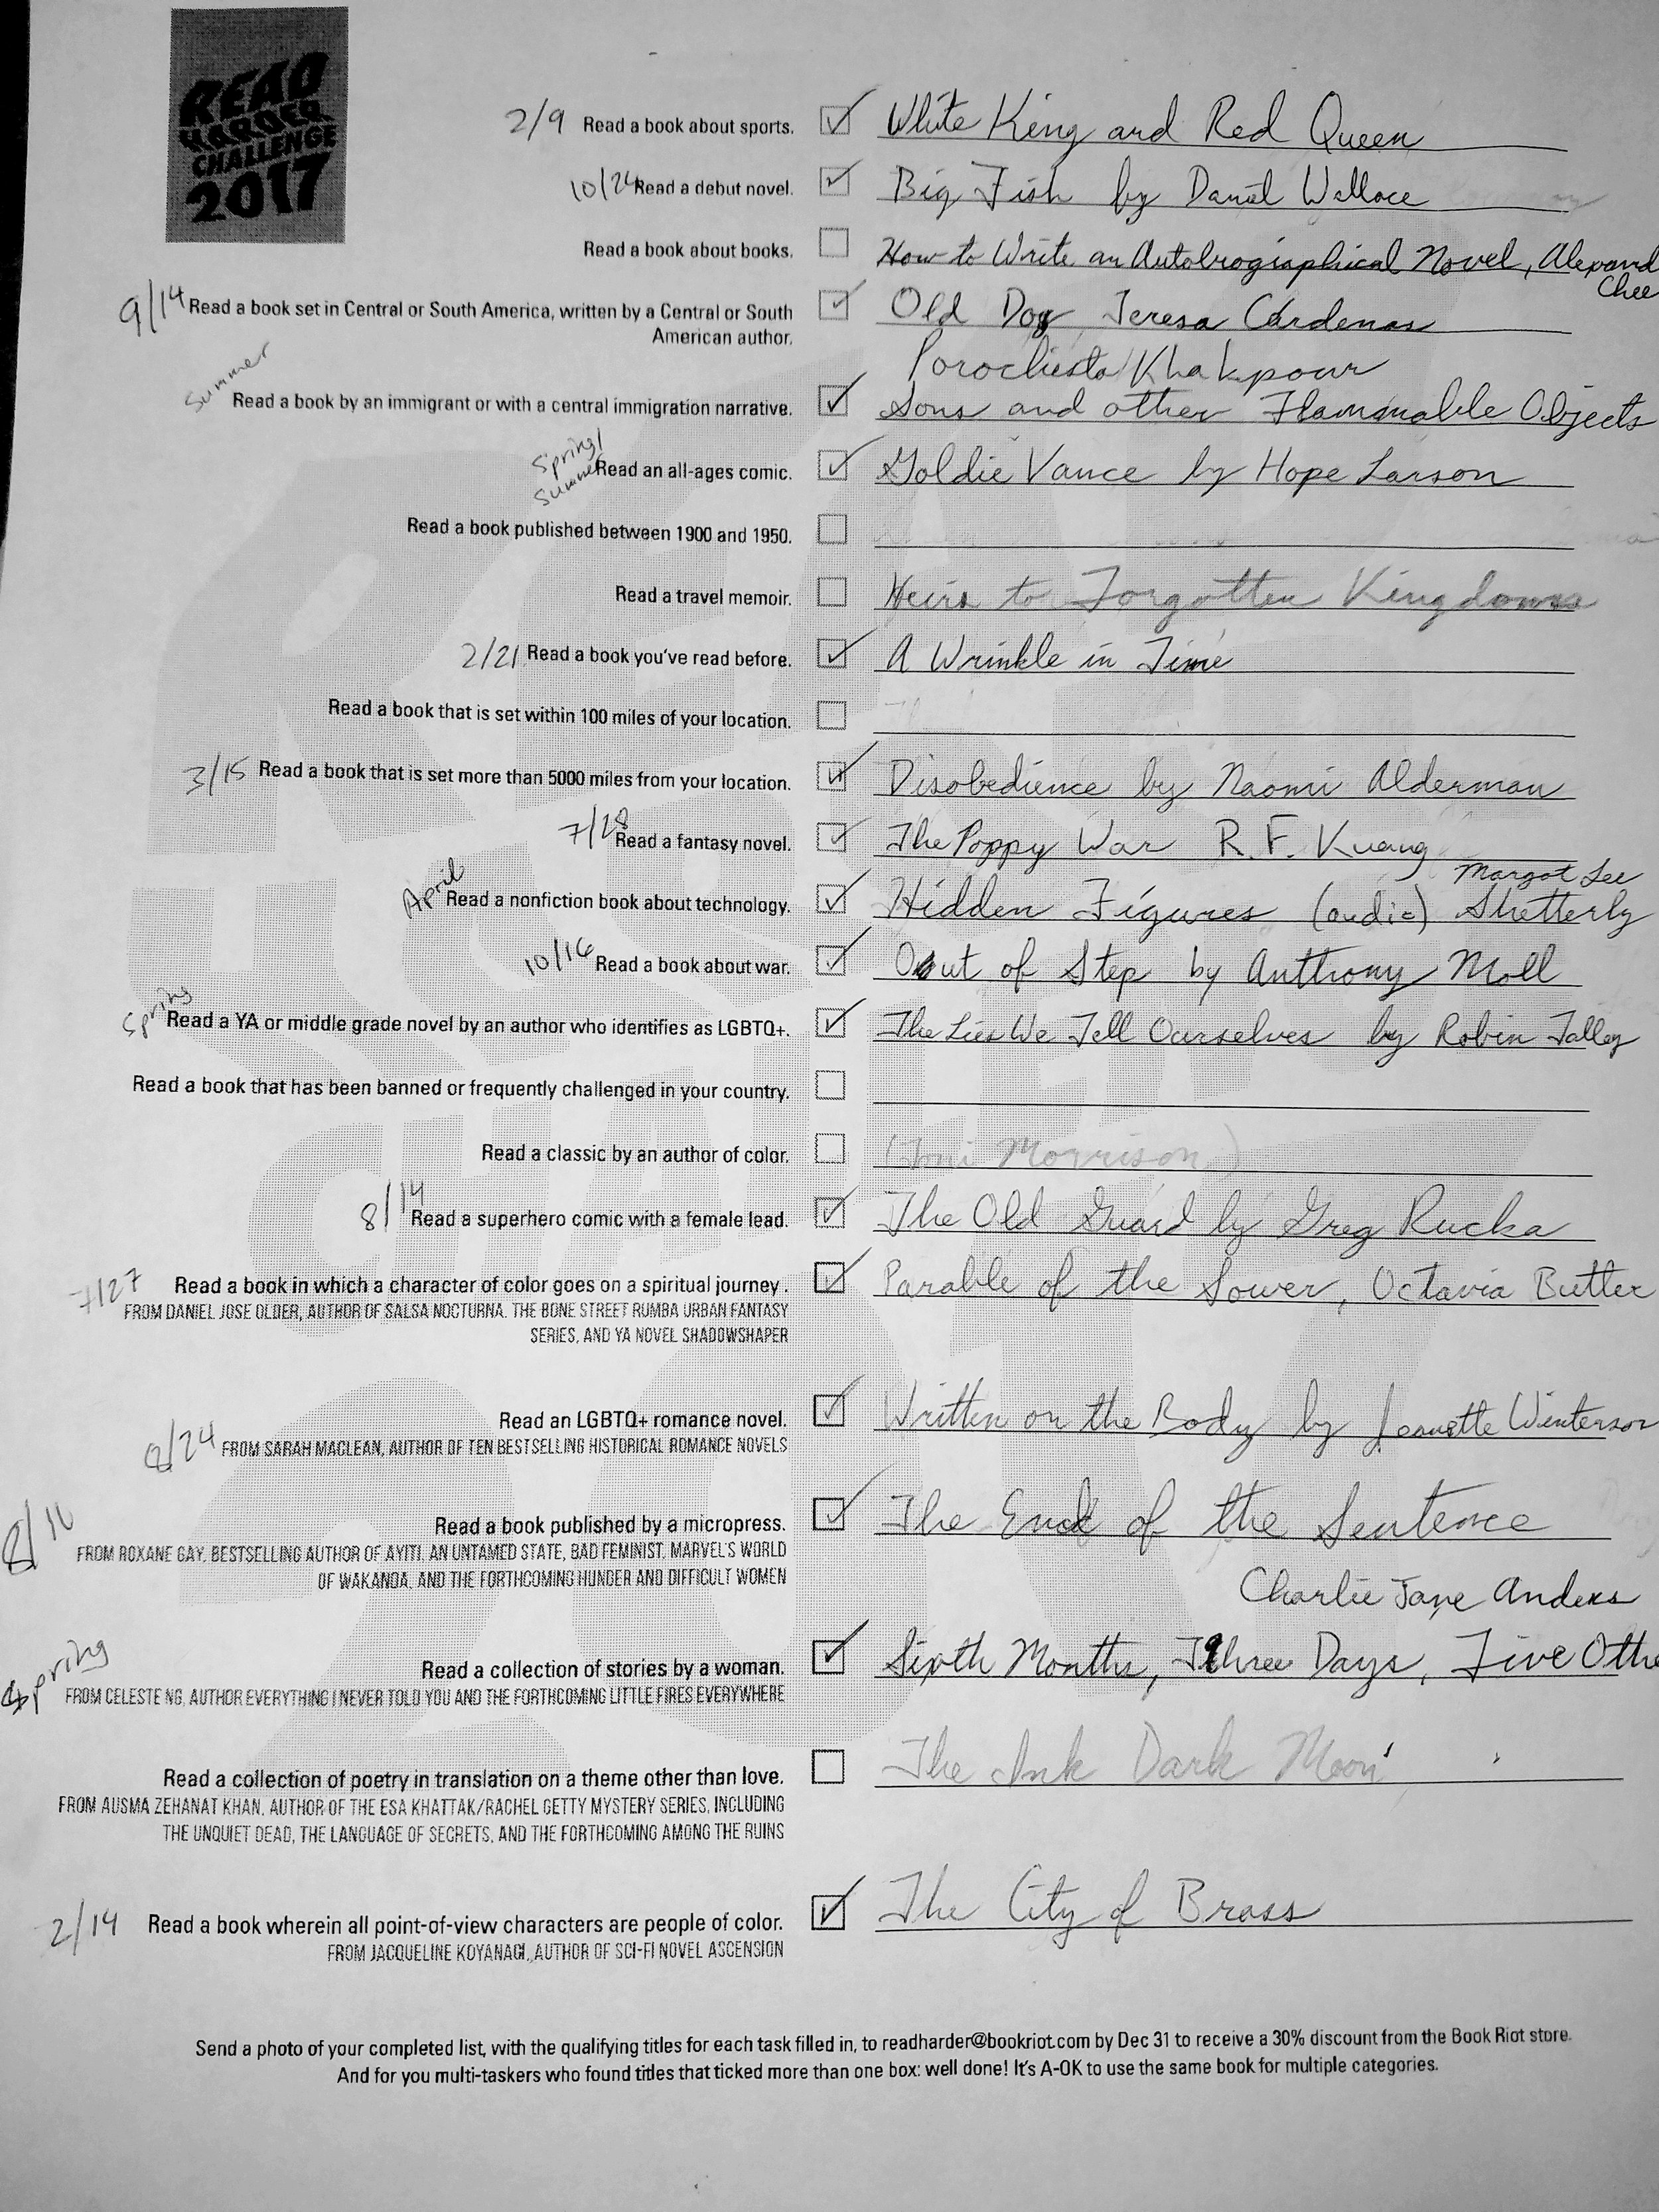 READ
HARDER
CHALLENGE
2017
2/9 Read a book about sports. White King and Red Queen
10/24 Read a debut novel. Big Fish by Daniel Wallace
Read a book about books. How to Write an Autobiographical Novel, Alexand
Chee
9/14 Read a book set in Central or South America, written by a Central or South Old Dog, Teresa Cárdenas
American author.
Porochista Khakpour
Summer Read a book by an immigrant or with a central immigration narrative. Sons and other Flammable Objects
Spring/
Summer Read an all-ages comic. Goldie Vance by Hope Larson
Read a book published between 1900 and 1950.
Read a travel memoir. Heirs to Forgotten Kingdoms
2/21 Read a book you've read before. A Wrinkle in Time
Read a book that is set within 100 miles of your location.
3/15 Read a book that is set more than 5000 miles from your location. Disobedience by Naomi Alderman
7/28 Read a fantasy novel. The Poppy War R. F. Kuang
Margot Lee
April Read a nonfiction book about technology. Hidden Figures (audio) Shetterly
10/16 Read a book about war. Out of Step by Anthony Moll
Spring Read a YA or middle grade novel by an author who identifies as LGBTQ+. The Lies We Tell Ourselves by Robin Talley
Read a book that has been banned or frequently challenged in your country.
Read a classic by an author of color. (Toni Morrison)
8/14 Read a superhero comic with a female lead. The Old Guard by Greg Rucka
7/27 Read a book in which a character of color goes on a spiritual journey. Parable of the Sower, Octavia Butler
FROM DANIEL JOSE OLDER, AUTHOR OF SALSA NOCTURNA, THE BONE STREET RUMBA URBAN FANTASY
SERIES, AND YA NOVEL SHADOWSHAPER
Read an LGBTQ+ romance novel. Written on the Body by Jeanette Winterson
8/24 FROM SARAH MACLEAN, AUTHOR OF TEN BESTSELLING HISTORICAL ROMANCE NOVELS
8/16 Read a book published by a micropress. The End of the Sentence
FROM ROXANE GAY, BESTSELLING AUTHOR OF AYITI, AN UNTAMED STATE, BAD FEMINIST, MARVEL'S WORLD
OF WAKANDA, AND THE FORTHCOMING HUNGER AND DIFFICULT WOMEN
Charlie Jane Anders
Spring Read a collection of stories by a woman. Sixth Months, Three Days, Five Othe
FROM CELESTE NG, AUTHOR EVERYTHING I NEVER TOLD YOU AND THE FORTHCOMING LITTLE FIRES EVERYWHERE
Read a collection of poetry in translation on a theme other than love. The Ink Dark Moon
FROM AUSMA ZEHANAT KHAN, AUTHOR OF THE ESA KHATTAK/RACHEL GETTY MYSTERY SERIES, INCLUDING
THE UNQUIET DEAD, THE LANGUAGE OF SECRETS, AND THE FORTHCOMING AMONG THE RUINS
2/14 Read a book wherein all point-of-view characters are people of color. The City of Brass
FROM JACQUELINE KOYANAGI, AUTHOR OF SCI-FI NOVEL ASCENSION
Send a photo of your completed list, with the qualifying titles for each task filled in, to readharder@bookriot.com by Dec 31 to receive a 30% discount from the Book Riot store.
And for you multi-taskers who found titles that ticked more than one box: well done! It's A-OK to use the same book for multiple categories.